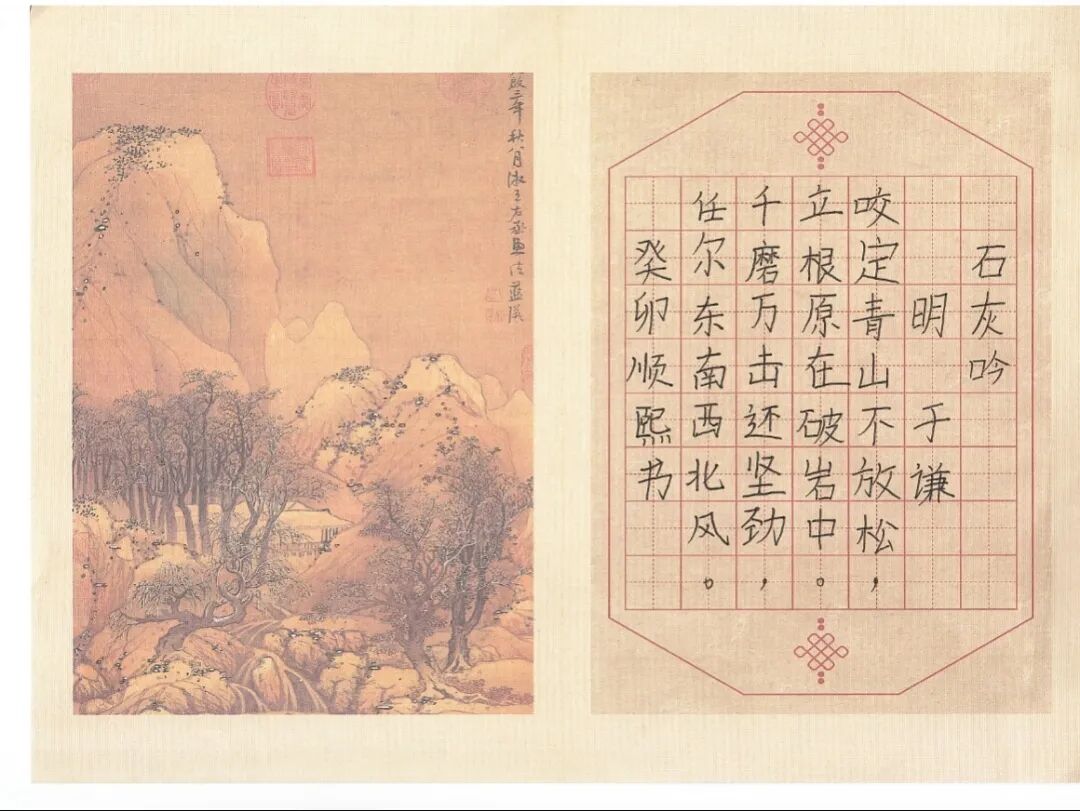 石灰吟
明 于谦
咬定青山不放松，
立根原在破岩中。
千磨万击还坚劲，
任尔东南西北风。
癸卯顺熙书
年秋八月王右丞畫法藍瑛